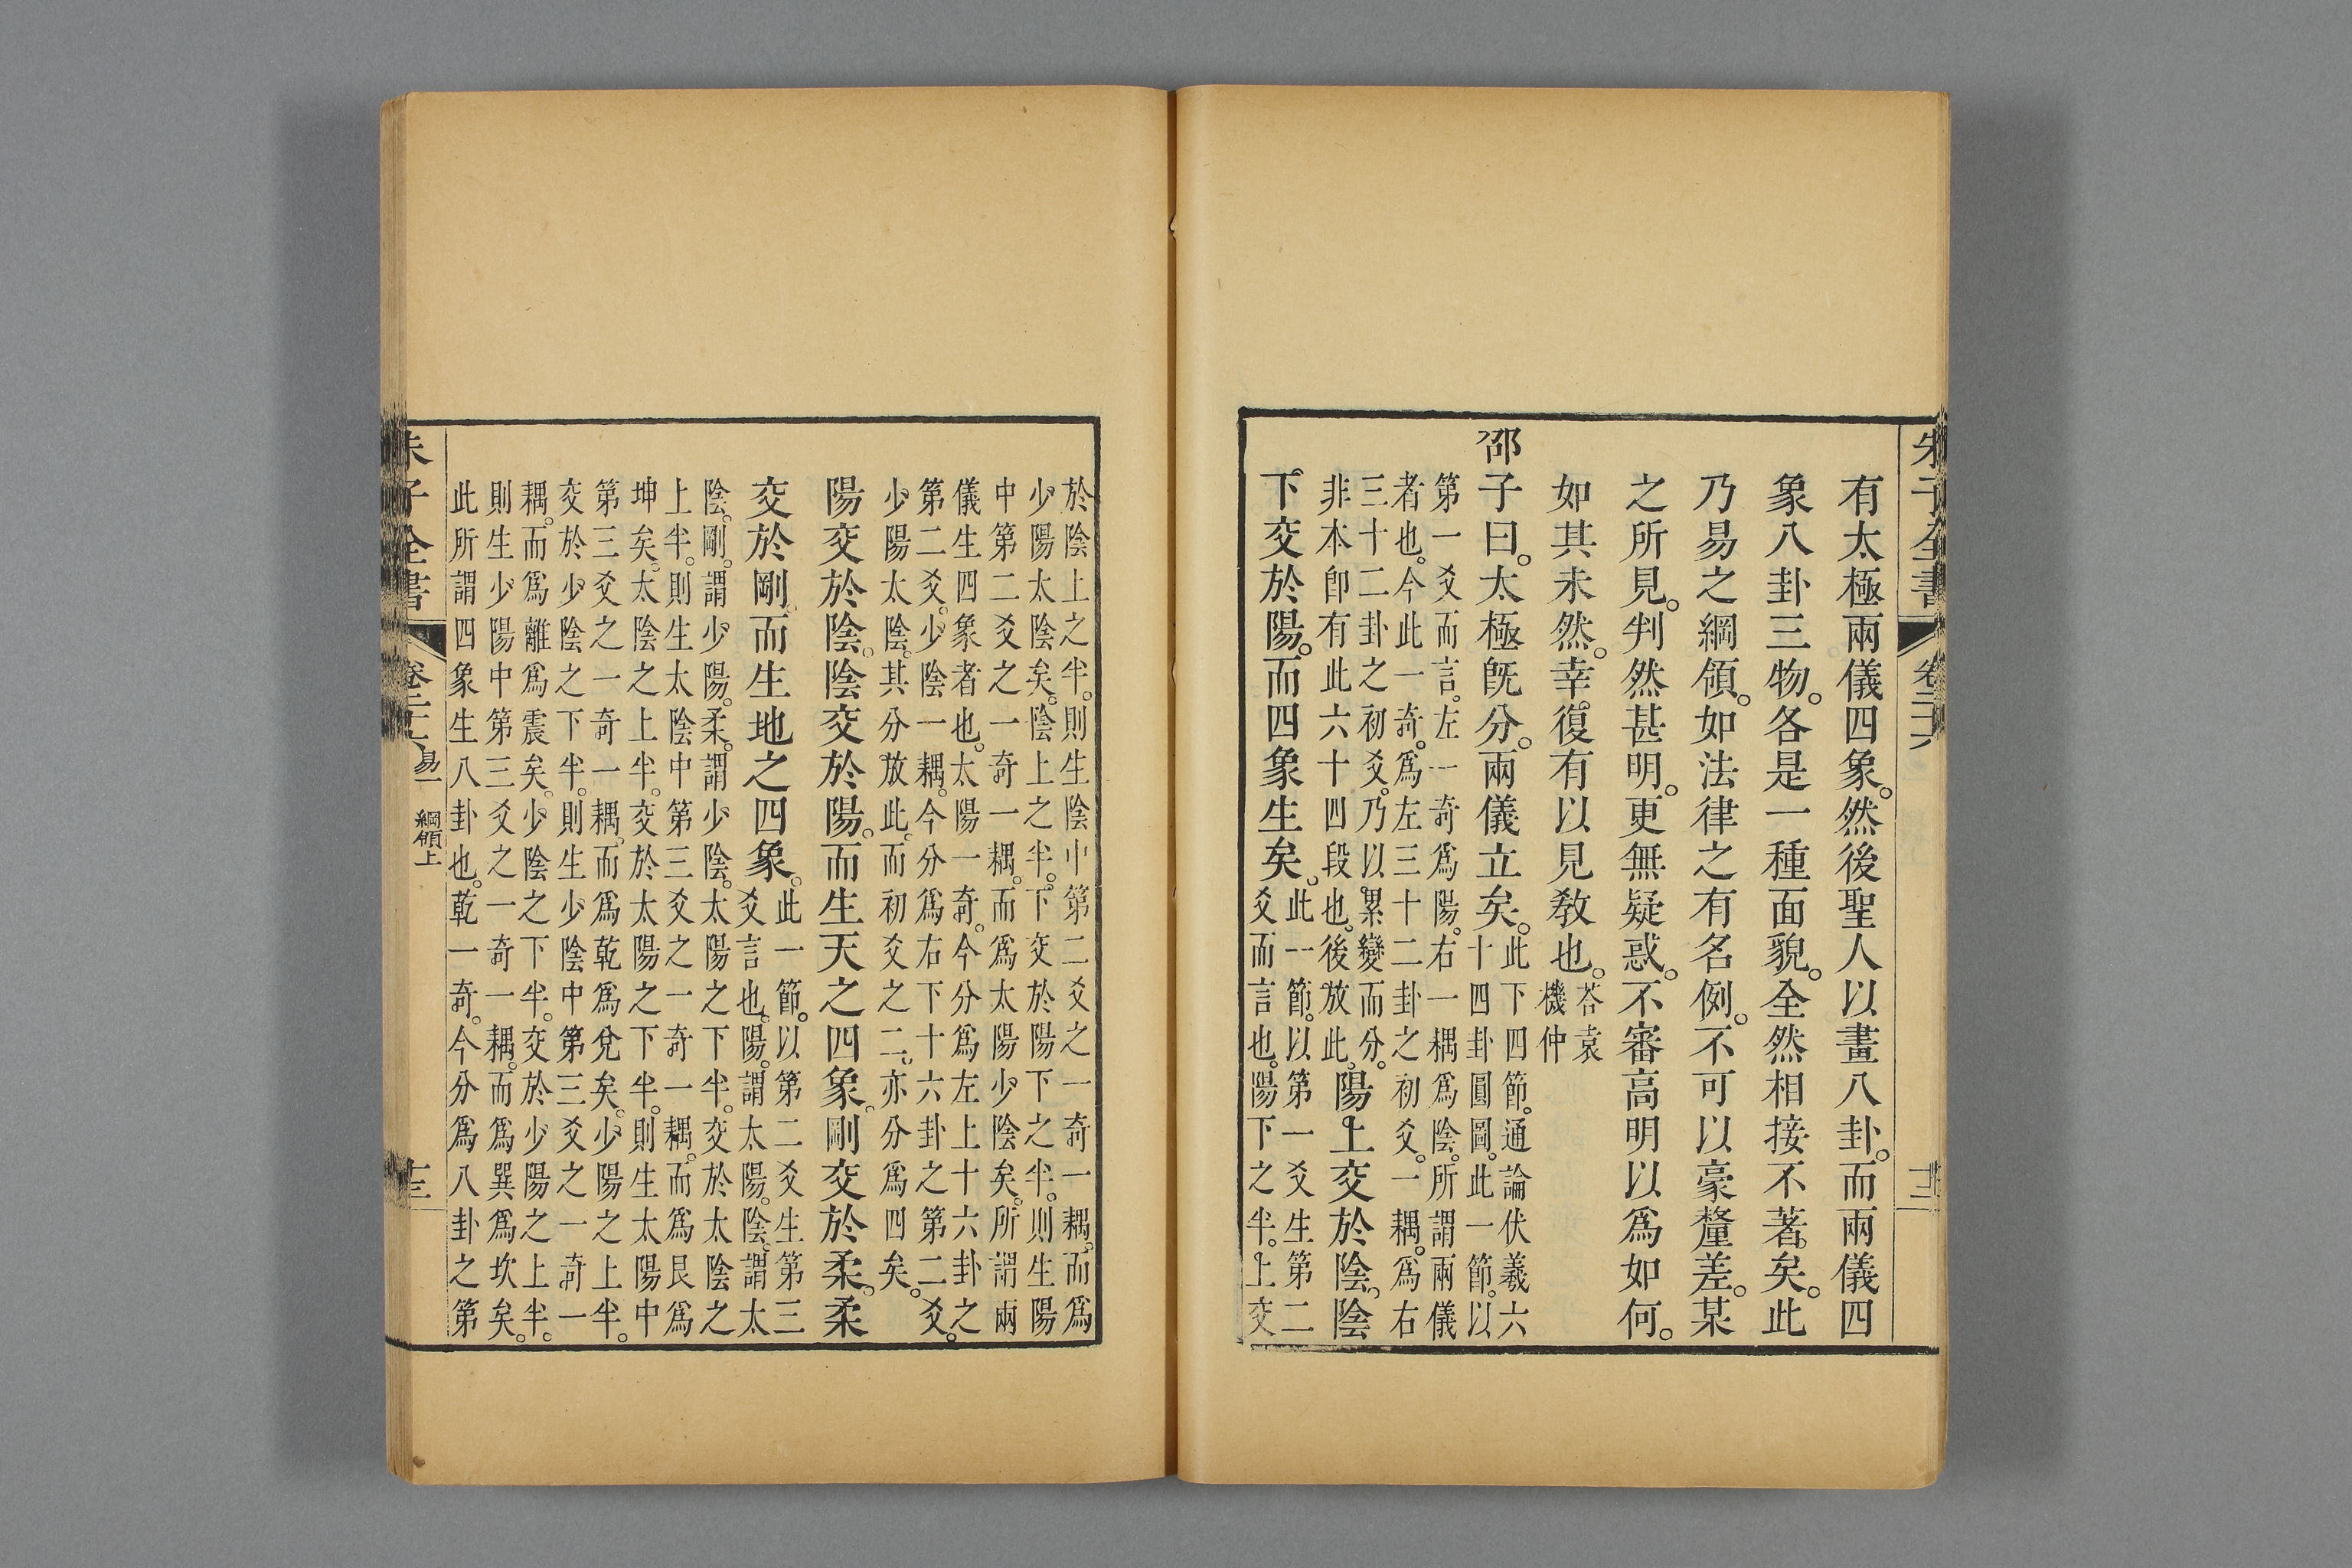 朱子全書
卷二十六
有太極兩儀四象。然後聖人以畫八卦。而兩儀四
象八卦三物。各是一種面貌。全然相接不著矣。此
乃易之綱領。如法律之有名例。不可以豪釐差。某
之所見。判然甚明。更無疑惑。不審高明以爲如何。
如其未然。幸復有以見教也。
荅袁
機仲
邵子曰。太極旣分。兩儀立矣。
此下四節。通論伏羲六
十四卦圓圖。此一節。以
第一爻而言。左一奇爲陽。右一耦爲陰。所謂兩儀
者也。今此一奇。爲左三十二卦之初爻。一耦。爲右
三十二卦之初爻。乃以累變而分。
非本卽有此六十四段也。後放此。
陽上交於陰。陰
下交於陽。而四象生矣。
此一節。以第一爻生第二
爻而言也。陽下之半。上交
於陰上之半。則生陰中第二爻之一奇一耦。而爲
少陽太陰矣。陰上之半。下交於陽下之半。則生陽
中第二爻之一奇一耦。而爲太陽少陰矣。所謂兩
儀生四象者也。太陽一奇。今分爲左上十六卦之
第二爻。少陰一耦。今分爲右下十六卦之第二爻。
少陽太陰。其分放此。而初爻之二。亦分爲四矣。
陽交於陰。陰交於陽。而生天之四象。剛交於柔。柔
交於剛。而生地之四象。
此一節。以第二爻生第三
爻言也。陽。謂太陽。陰。謂太
陰。剛。謂少陽。柔。謂少陰。太陽之下半。交於太陰之
上半。則生太陰中第三爻之一奇一耦。而爲艮爲
坤矣。太陰之上半。交於太陽之下半。則生太陽中
第三爻之一奇一耦。而爲乾爲兌矣。少陽之上半。
交於少陰之下半。則生少陰中第三爻之一奇一
耦。而爲離爲震矣。少陰之下半。交於少陽之上半。
則生少陽中第三爻之一奇一耦。而爲巽爲坎矣。
此所謂四象生八卦也。乾一奇。今分爲八卦之第
朱子全書
卷二十六
易一
綱領上
十三